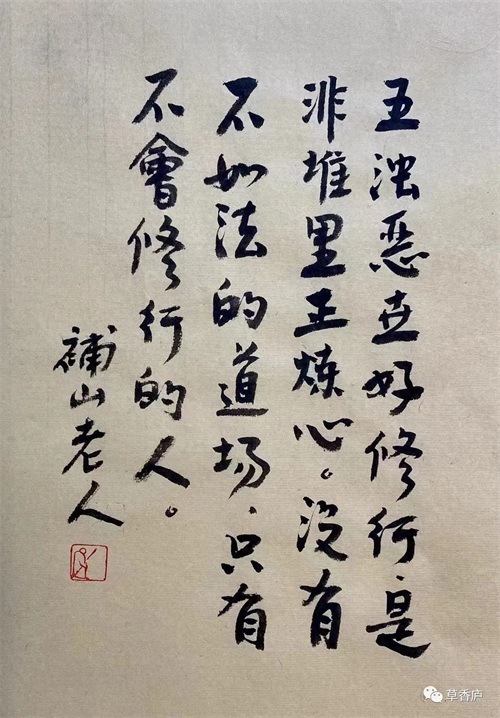 五浊恶世好修行,是
非堆里正炼心。没有
不如法的道场,只有
不會修行的人。
補山老人
草香庐